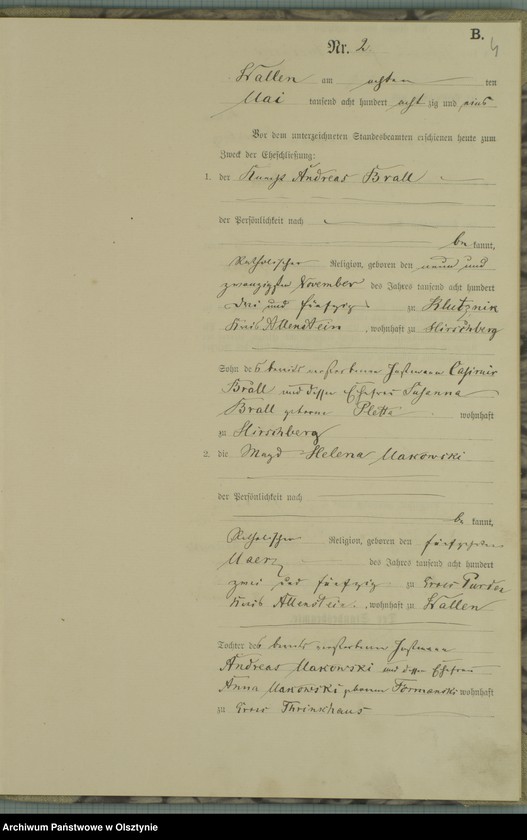 B.
4
Nr. 2
Wallen am achten ten
Mai tausend acht hundert acht zig und eins
Vor dem unterzeichneten Standesbeamten erschienen heute zum
Zweck der Eheschließung:
1. der Knecht Andreas Brall
der Persönlichkeit nach
be kannt,
katholischer Religion, geboren den neun und
zwanzigsten November des Jahres tausend acht hundert
drei und fünfzig zu Klutznik
Kreis Allenstein, wohnhaft zu Hirschberg
Sohn des bereits verstorbenen Instmann Casimir
Brall und dessen Ehefrau Susanna
Brall geborne Pletta wohnhaft
zu Hirschberg
2. die Magd Helena Makowski
der Persönlichkeit nach
be kannt,
katholischer Religion, geboren den fünfzehnten
Maerz des Jahres tausend acht hundert
zwei und fünfzig zu Gross Purden
Kreis Allenstein, wohnhaft zu Wallen
Tochter des bereits verstorbenen Instmann
Andreas Makowski und dessen Ehefrau
Anna Makowski geborene Formanski wohnhaft
zu Gross
Archiwum Państwowe w Olsztynie